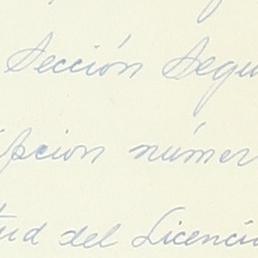 Sección Segu
ipcion númer
tud del Licenci